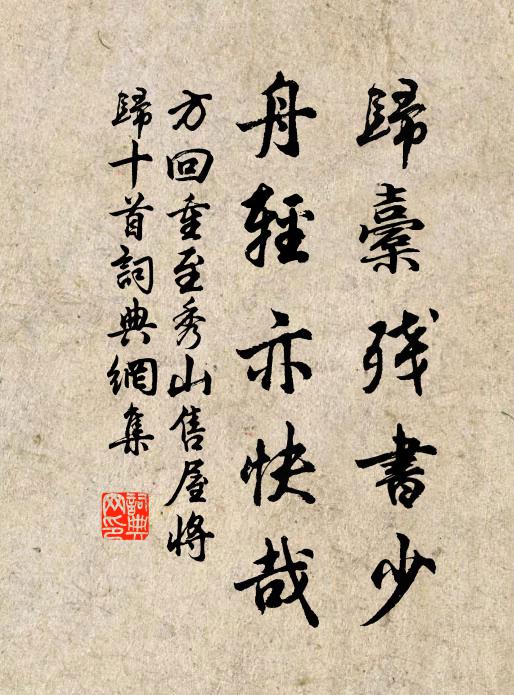 歸橐殘書少
舟輕亦快哉
方回重至秀山售屋將
歸十首詞典網集
詞典網印